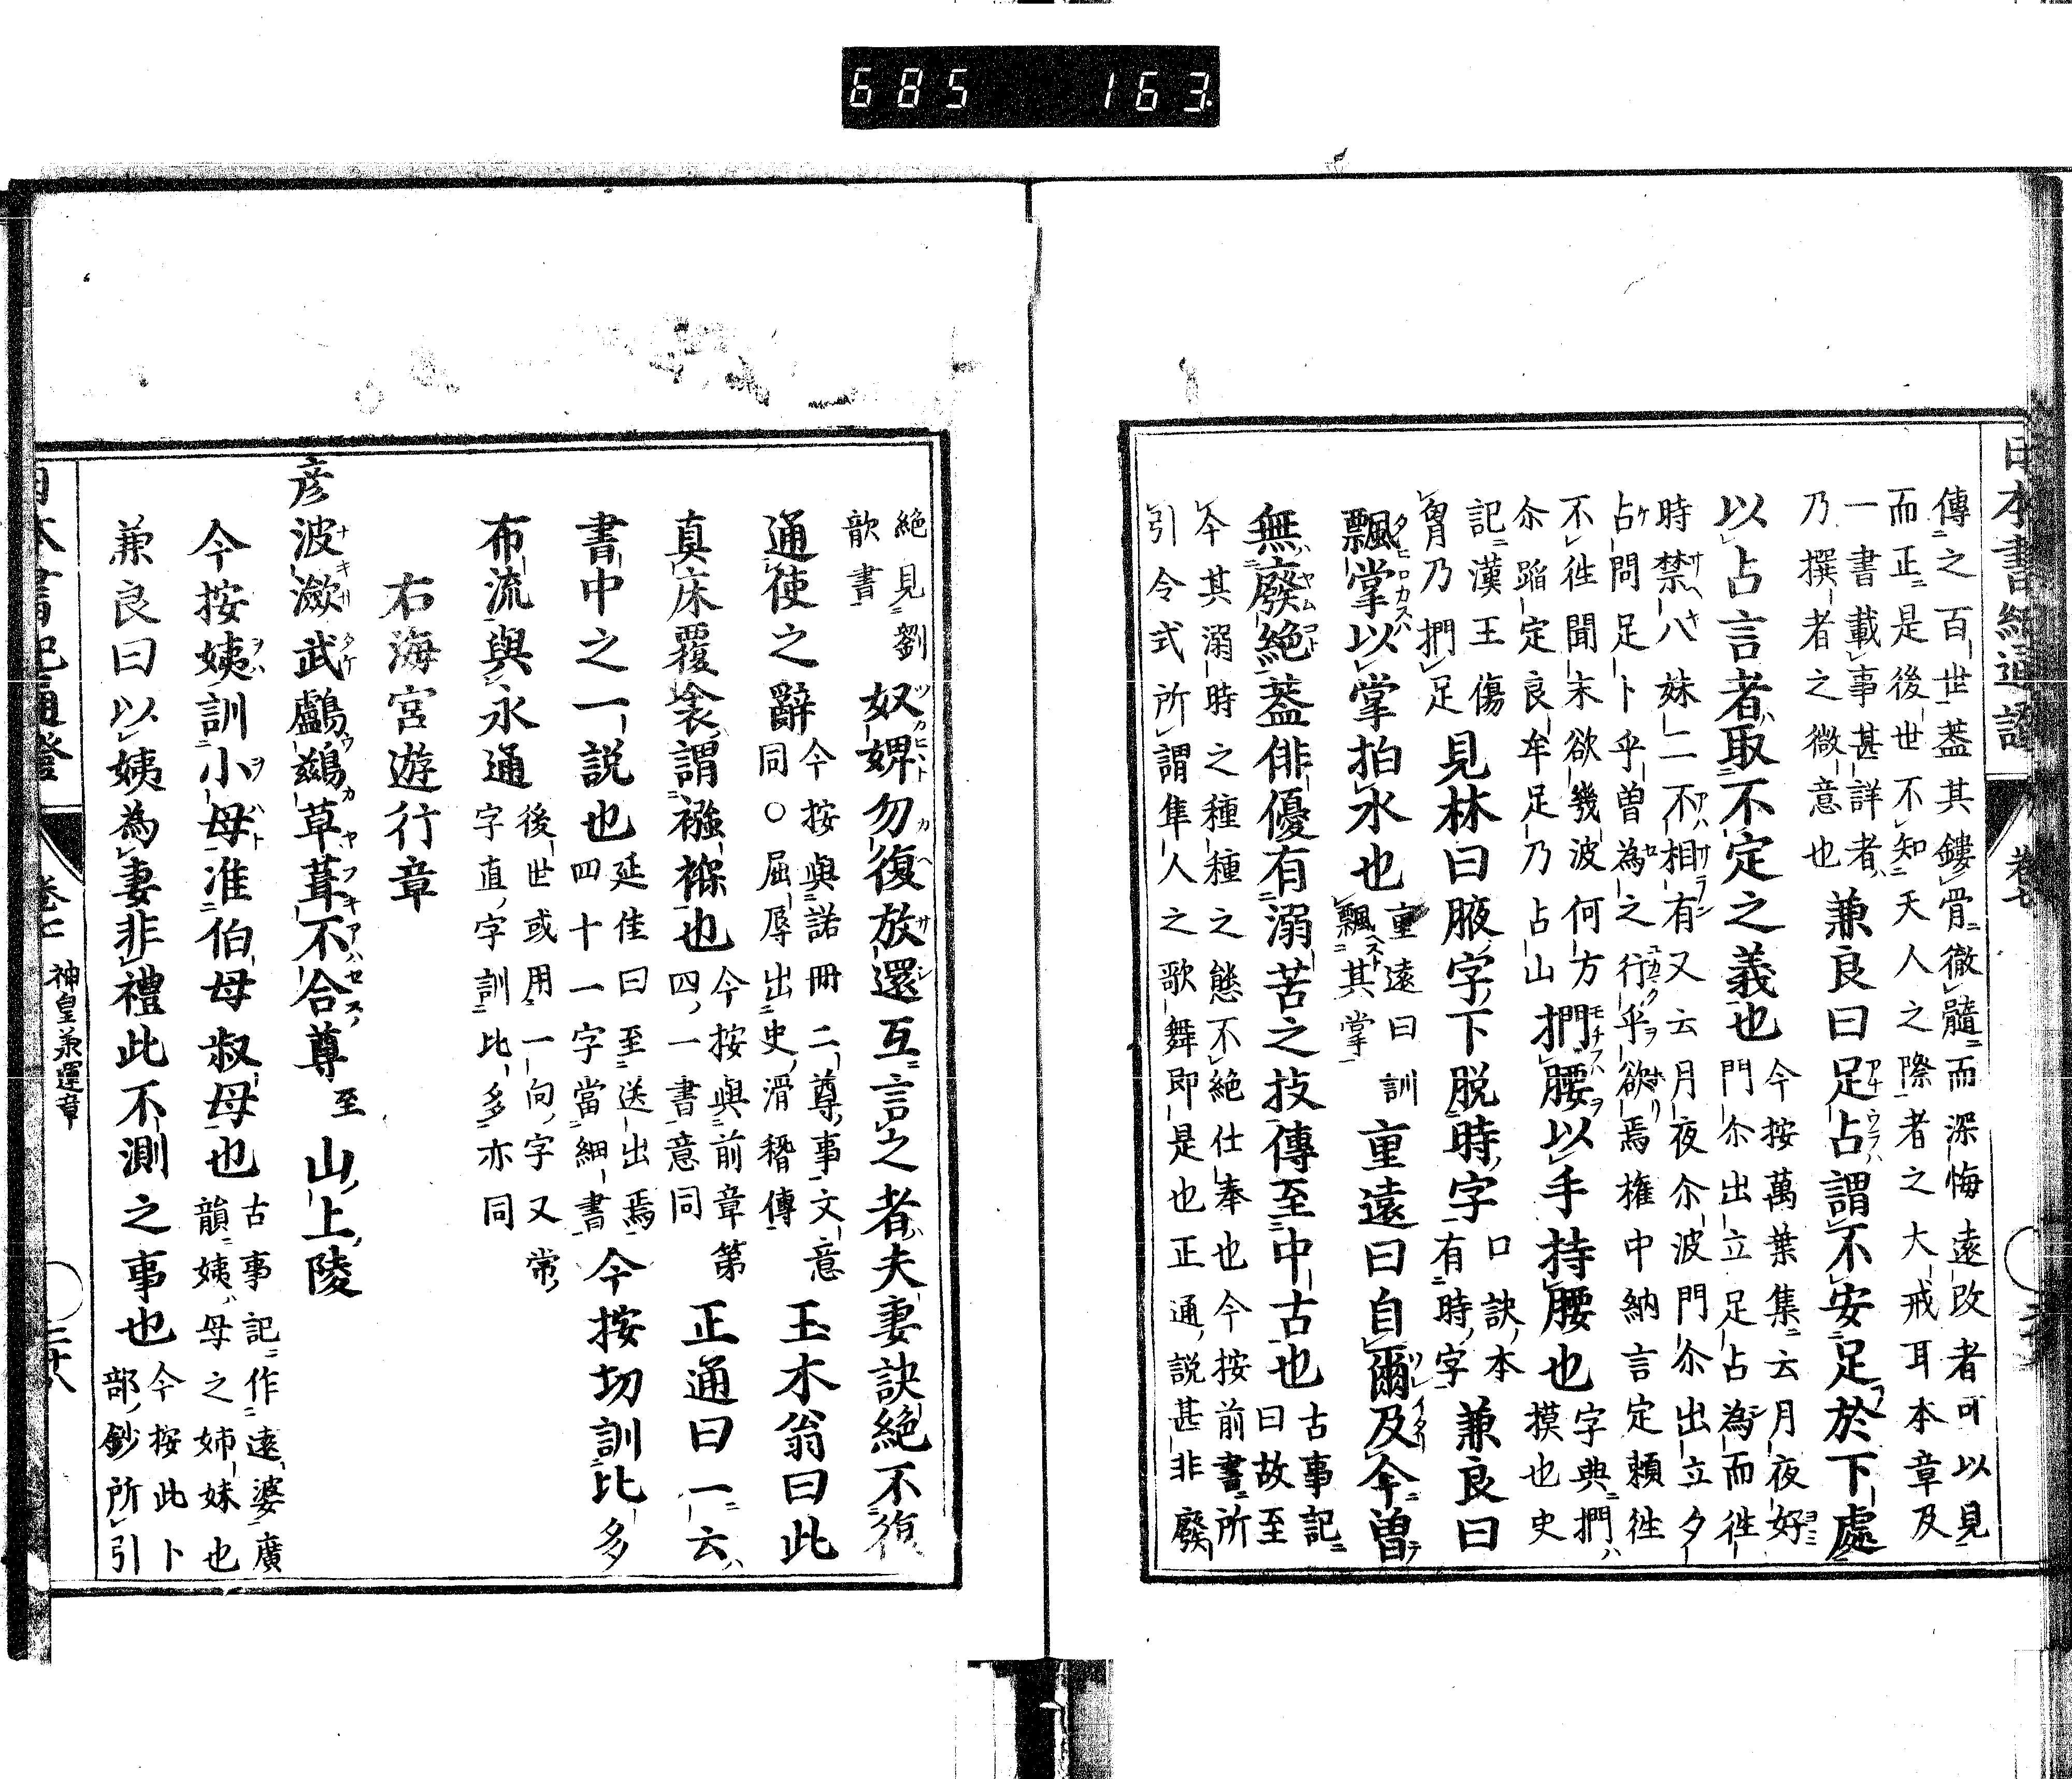 685 163
日本書紀通證 卷七
傳之百世葢其鏤骨徹髓而深悔遠改者可以見
而正是後世不知天人之際者之大戒耳本章及
一書載事甚詳者
乃撰者之微意也
兼良曰足占謂不安足於下處
以占言者取不定之義也
今按萬葉集云月夜好
門尒出立足占為而徃
時禁八妹二不相有又云月夜尒波門尒出立夕
占問足卜乎曽為之行乎欲焉権中納言定頼徃
不徃聞末欲幾波何方
尒蹈定良牟足乃占山
捫腰以手持腰也
字典捫
摸也史
記漢王傷
胷乃捫足
見林曰腋字下脱時字
口訣本
有時字
兼良曰
飄掌以掌拍水也
重遠曰訓
飄其掌
重遠曰自爾及今曽
無廢絶葢俳優有溺苦之技傳至中古也
古事記
曰故至
今其溺時之種種之態不絶仕奉也今按前書所
引令式所謂隼人之歌舞即是也正通説甚非廢
絶見劉
歆書
奴婢勿復放還互言之者夫妻訣絶不復
通使之辭
今按與諾冊二尊事文意
同○屈辱出史滑稽傳
玉木翁曰此
真床覆衾謂襁褓也
今按與前章第
四一書意同
正通曰一云
書中之一説也
延佳曰至送出焉
四十一字當細書
今按切訓比多
布流與永通
後世或用一向字又常
字直字訓比多亦同
右海宮遊行章
彦波瀲武鸕鷀草葺不合尊至山上陵
今按姨訓小母准伯母叔母也
古事記作遠婆廣
韻姨母之姉妹也
兼良曰以姨為妻非禮此不測之事也
今按此卜
部鈔所引
日本書紀通證 卷七 神皇承運章 三十八